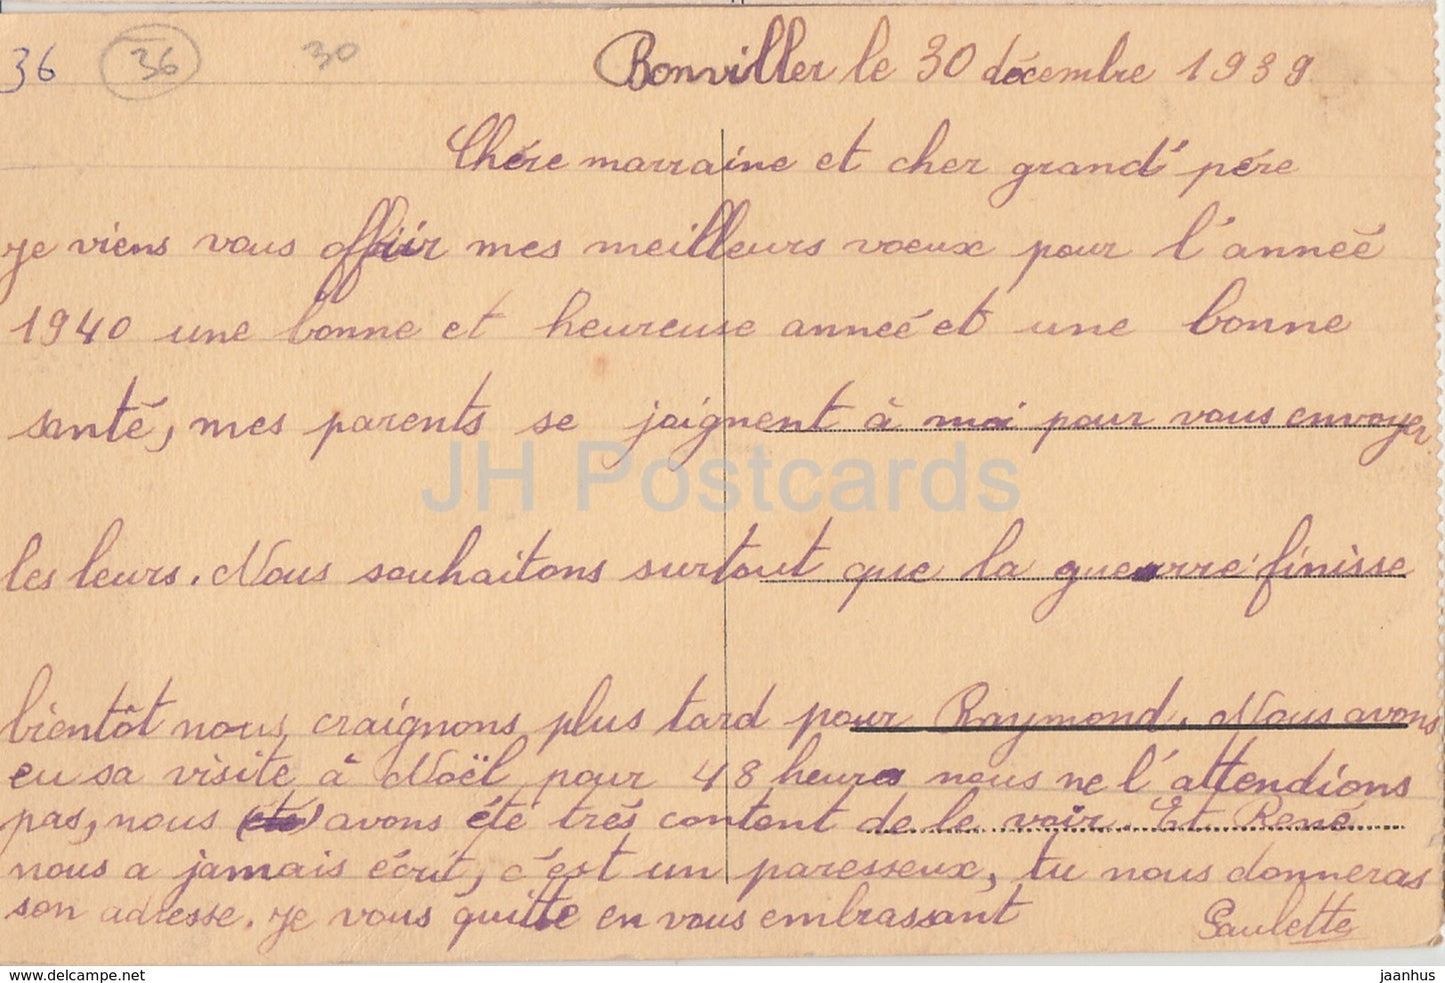 36 36 30 Bonviller le 30 décembre 1939
Chére marraine et cher grand' pére
je viens vous offrir mes meilleurs voeux pour l'anneé
1940 une bonne et heureuse anneé et une bonne
santé, mes parents se joignent à moi pour vous envoyer
JH Postcards
les leurs. Nous souhaitons surtout que la guerre finisse
bientôt nous craignons plus tard pour Raymond. Nous avons
eu sa visite à Noël pour 48 heures nous ne l'attendions
pas, nous (été) avons été trés content de le voir. Et René
nous a jamais écrit, c'est un paresseux, tu nous donneras
son adresse. je vous quitte en vous embrassant
Paulette
delcampe.net
jaanhus